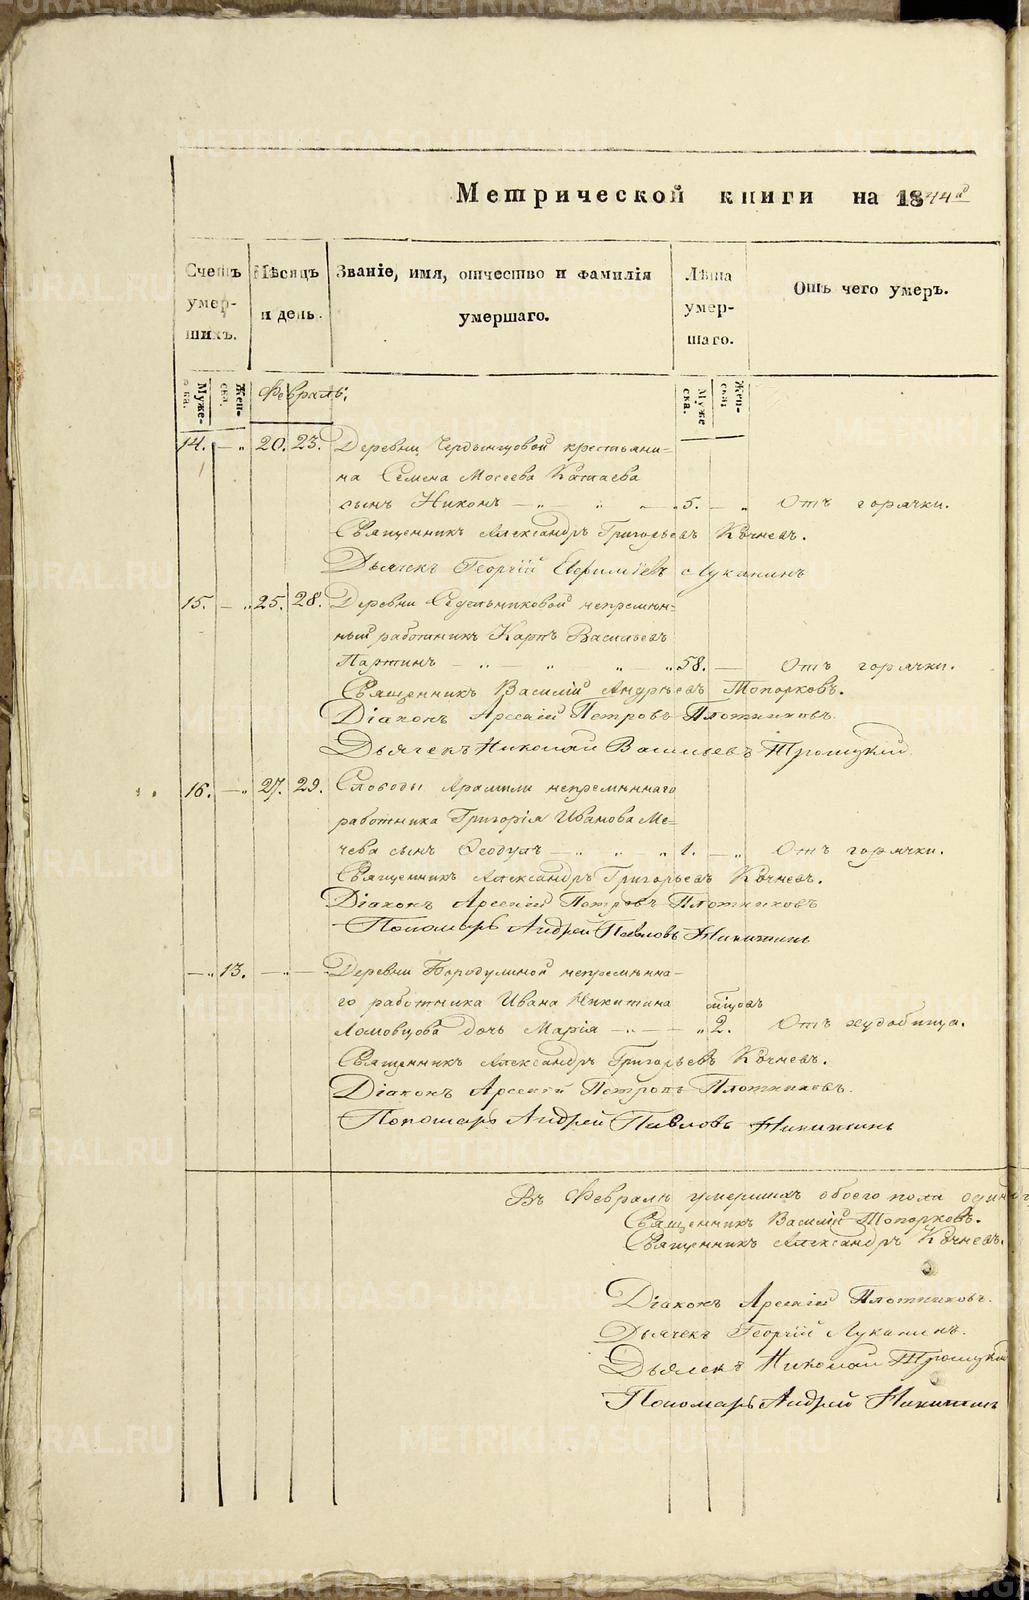 Метрической книги на 1844й
Счетъ умер- шихъ.
Мѣсяцъ и день.
Званіе, имя, отчество и фамилія умершаго.
Лѣта умер- шаго.
Отъ чего умеръ.
Муже- ска.
Жен- ска.
Февраль:
Муже ска.
Жен- ска.
14. — „ 20. 23. Деревни крестьяни=
на Семена Мосеева Катаева
сынъ Никонъ — „ „ „ 5. — „ Отъ горячки.
Священникъ Александръ Григорьевъ Кочневъ.
Дьячекъ Георгій Лукaнинъ
15. — „ 25. 28. Деревни Седельниковой непремѣн=
ный работникъ Карпъ Васильевъ
Партинъ — „ — „ — „ — „ 58. — Отъ горячки.
Священникъ Василій Андрѣевъ Топорковъ.
Діаконъ Арсеній Петровъ Плотниковъ.
Дьячекъ Николай Васильевъ Троицкій.
16. — „ 27. 29. Слободы Арамили непремѣннаго
работника Григорія Иванова Ме=
чева сынъ Ѳеодулъ — „ „ „ 1. — „ Отъ горячки.
Священникъ Александръ Григорьевъ Кочневъ.
Діаконъ Арсеній Петровъ Плотниковъ
Пономарь Андрей Павловъ Никитинъ
— „ 13. — „ — Деревни Бородулиной непремѣнна-
го работника Ивана Никитина мѣсцовъ
Ломовцова дочь Марія — „ — — „ 2. Отъ худобища.
Священникъ Александръ Григорьевъ Кочневъ.
Діаконъ Арсеній Петровъ Плотниковъ.
Пономарь Андрей Павловъ Никитинъ
Въ Февралѣ умершихъ обоего пола
Священникъ Василій Топорковъ.
Священникъ Александръ Кочневъ.
Діаконъ Арсеній Плотниковъ.
Дьячекъ Георгій Луканинъ.
Дьячекъ Николай Троицкій
Пономарь Андрей Никитинъ
METRIKI.GASO-URAL.RU